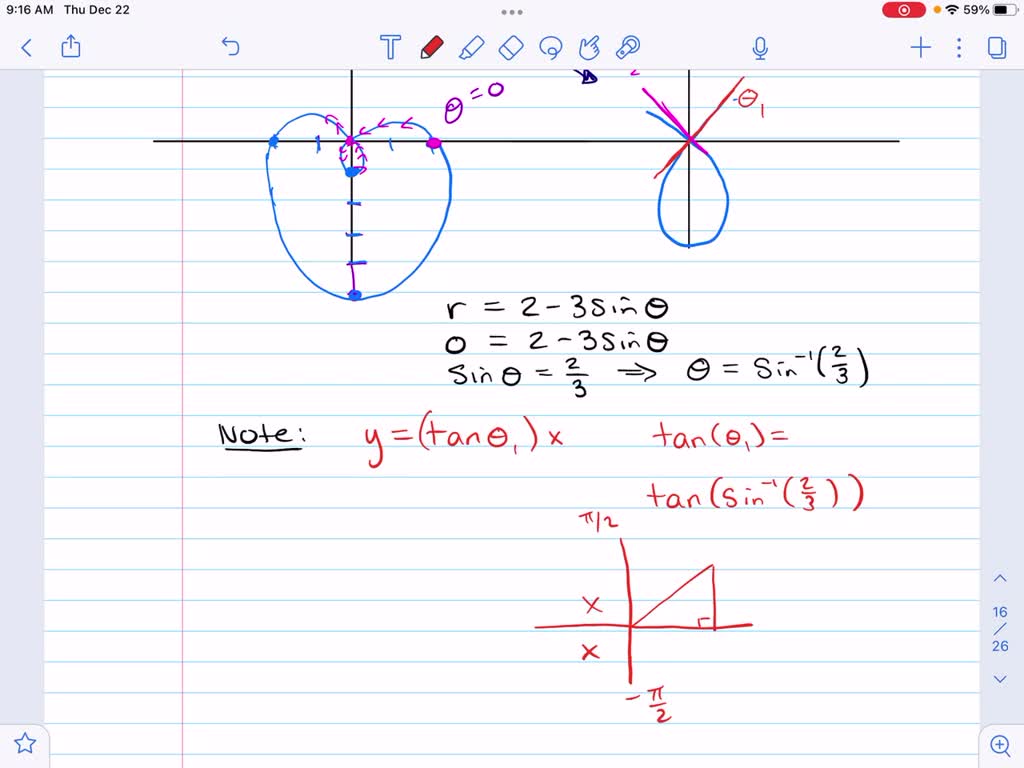 9:16 AM Thu Dec 22
59%
T
θ = 0
θ₁
r = 2 - 3 sin θ
0 = 2 - 3 sin θ
sin θ = 2/3 ⇒ θ = sin⁻¹(2/3)
Note: y = (tan θ₁) x tan(θ₁) =
tan(sin⁻¹(2/3))
π/2
x
x
- π/2
16
/
26